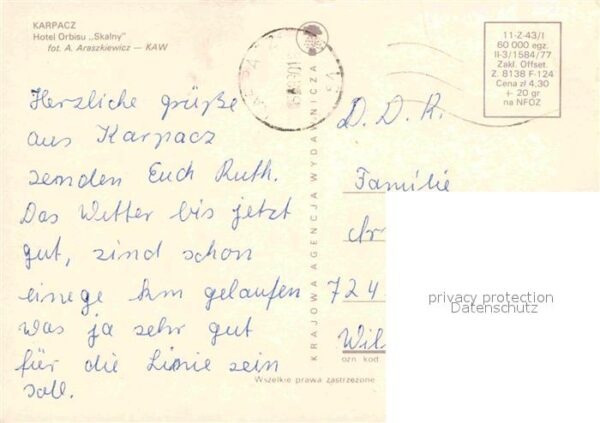 KARPACZ
Hotel Orbisu „Skalny"
fot. A. Araszkiewicz — KAW
11-Z-43/I
60 000 egz.
II-3/1584/77
Zakl. Offset.
Z. 8138 F-124
Cena zł 4,30
+ 20 gr
na NFOZ
Herzliche grüße
aus Karpacz
senden Euch Ruth.
Das Wetter bis jetzt
gut, sind schon
einege km gelaufen
was ja sehr gut
für die Linie sein
soll.
KRAJOWA AGENCJA WYDAWNICZA
D. D. R.
Familie
724
Wil
ozn kod
privacy protection
Datenschutz
Wszelkie prawa zastrzeżone